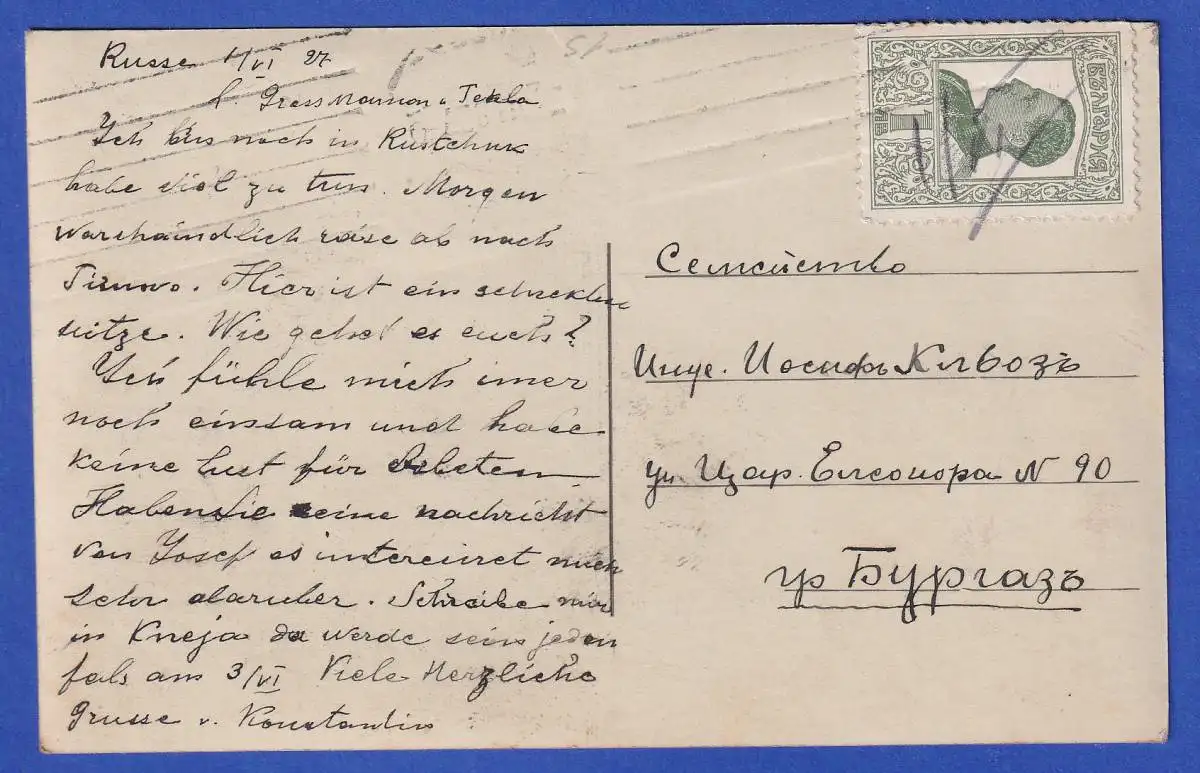 Russe 1/VI 27
l. Grossmaman u Tekla
Ich bin noch in Rustchuk
habe viel zu tun. Morgen
warchaindlich reise ab nach
Tirnovo. Hier ist ein schrekliche
hitze. Wie gehet es euch?
Ich fühle mich imer
noch einsam und habe
keine lust für Arbeten
Haben Sie keine nachricht
von Josef es intereiret mich
sehr daruber. Schreibe mir
in Kneja da werde sein jeden
fals am 3/VI Viele Herzliche
Grusse v. Konstantin
БЪЛГАРИЯ
1
Семейство
Инж. Иосифъ Клвозъ
ул. Цар. Елеонора N 90
гр Бургазъ